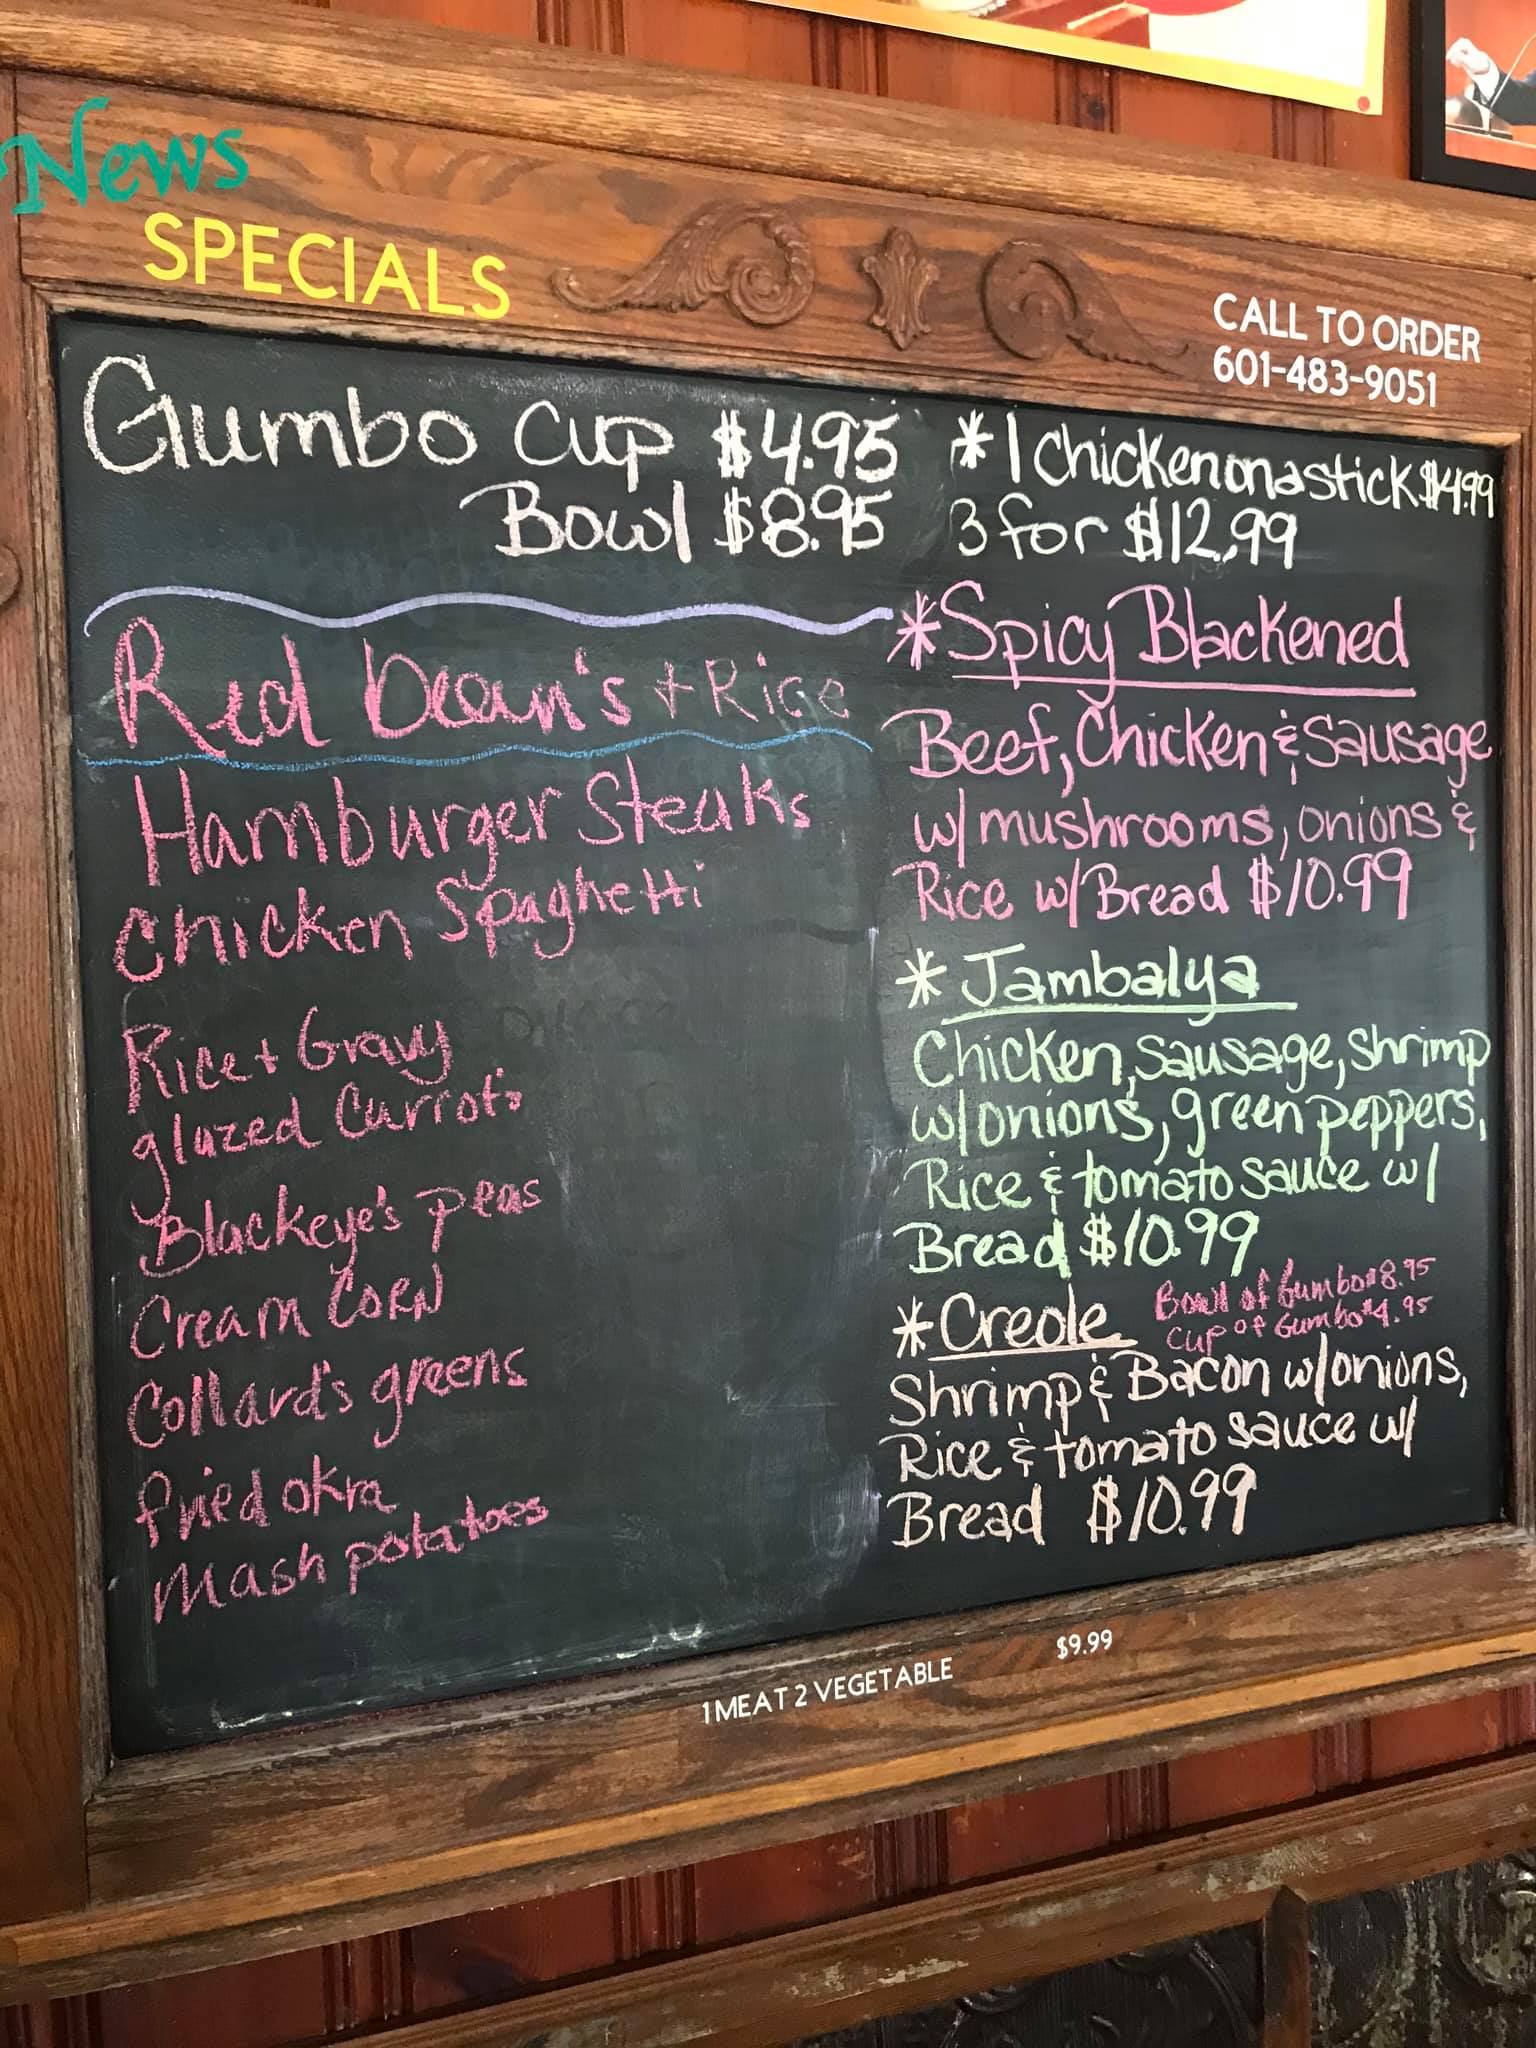 News
SPECIALS
CALL TO ORDER
601-483-9051
Gumbo Cup $4.95
Bowl $8.95
Red bean's + Rice
Hamburger Steaks
Chicken Spaghetti
Rice + Gravy
glazed Carrots
Blackeye's peas
Cream CORN
Collard's greens
fried okra
Mash potatoes
* 1 Chickenonastick $4.99
3 for $12.99
* Spicy Blackened
Beef, Chicken & Sausage
w/ mushrooms, onions &
Rice w/ Bread $10.99
* Jambalya
Chicken, sausage, shrimp
w/ onions, green peppers,
Rice & tomato sauce w/
Bread $10.99
Bowl of Gumbo $8.95
Cup of Gumbo $4.95
* Creole
Shrimp & Bacon w/ onions,
Rice & tomato sauce w/
Bread $10.99
1 MEAT 2 VEGETABLE $9.99